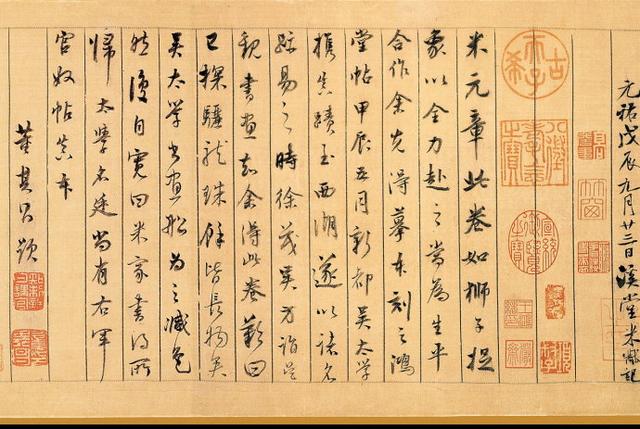 元祐戊辰九月廿三日溪堂米黻記
古希天子
宣統御覽之寶
米元章此卷如獅子捉
象以全力赴之當為生平
合作余先得摹本刻之鴻
堂帖甲辰五月新都吳太學
攜真蹟至西湖遂以諸名
跡易之時徐茂吳方詣吳
觀書畫知余得此卷歎曰
已探驪龍珠餘皆長物矣
吳太學書畫船為之減色
然後自寬曰米家書得所
歸太學名廷尚有右軍
官奴帖真本
董其昌題